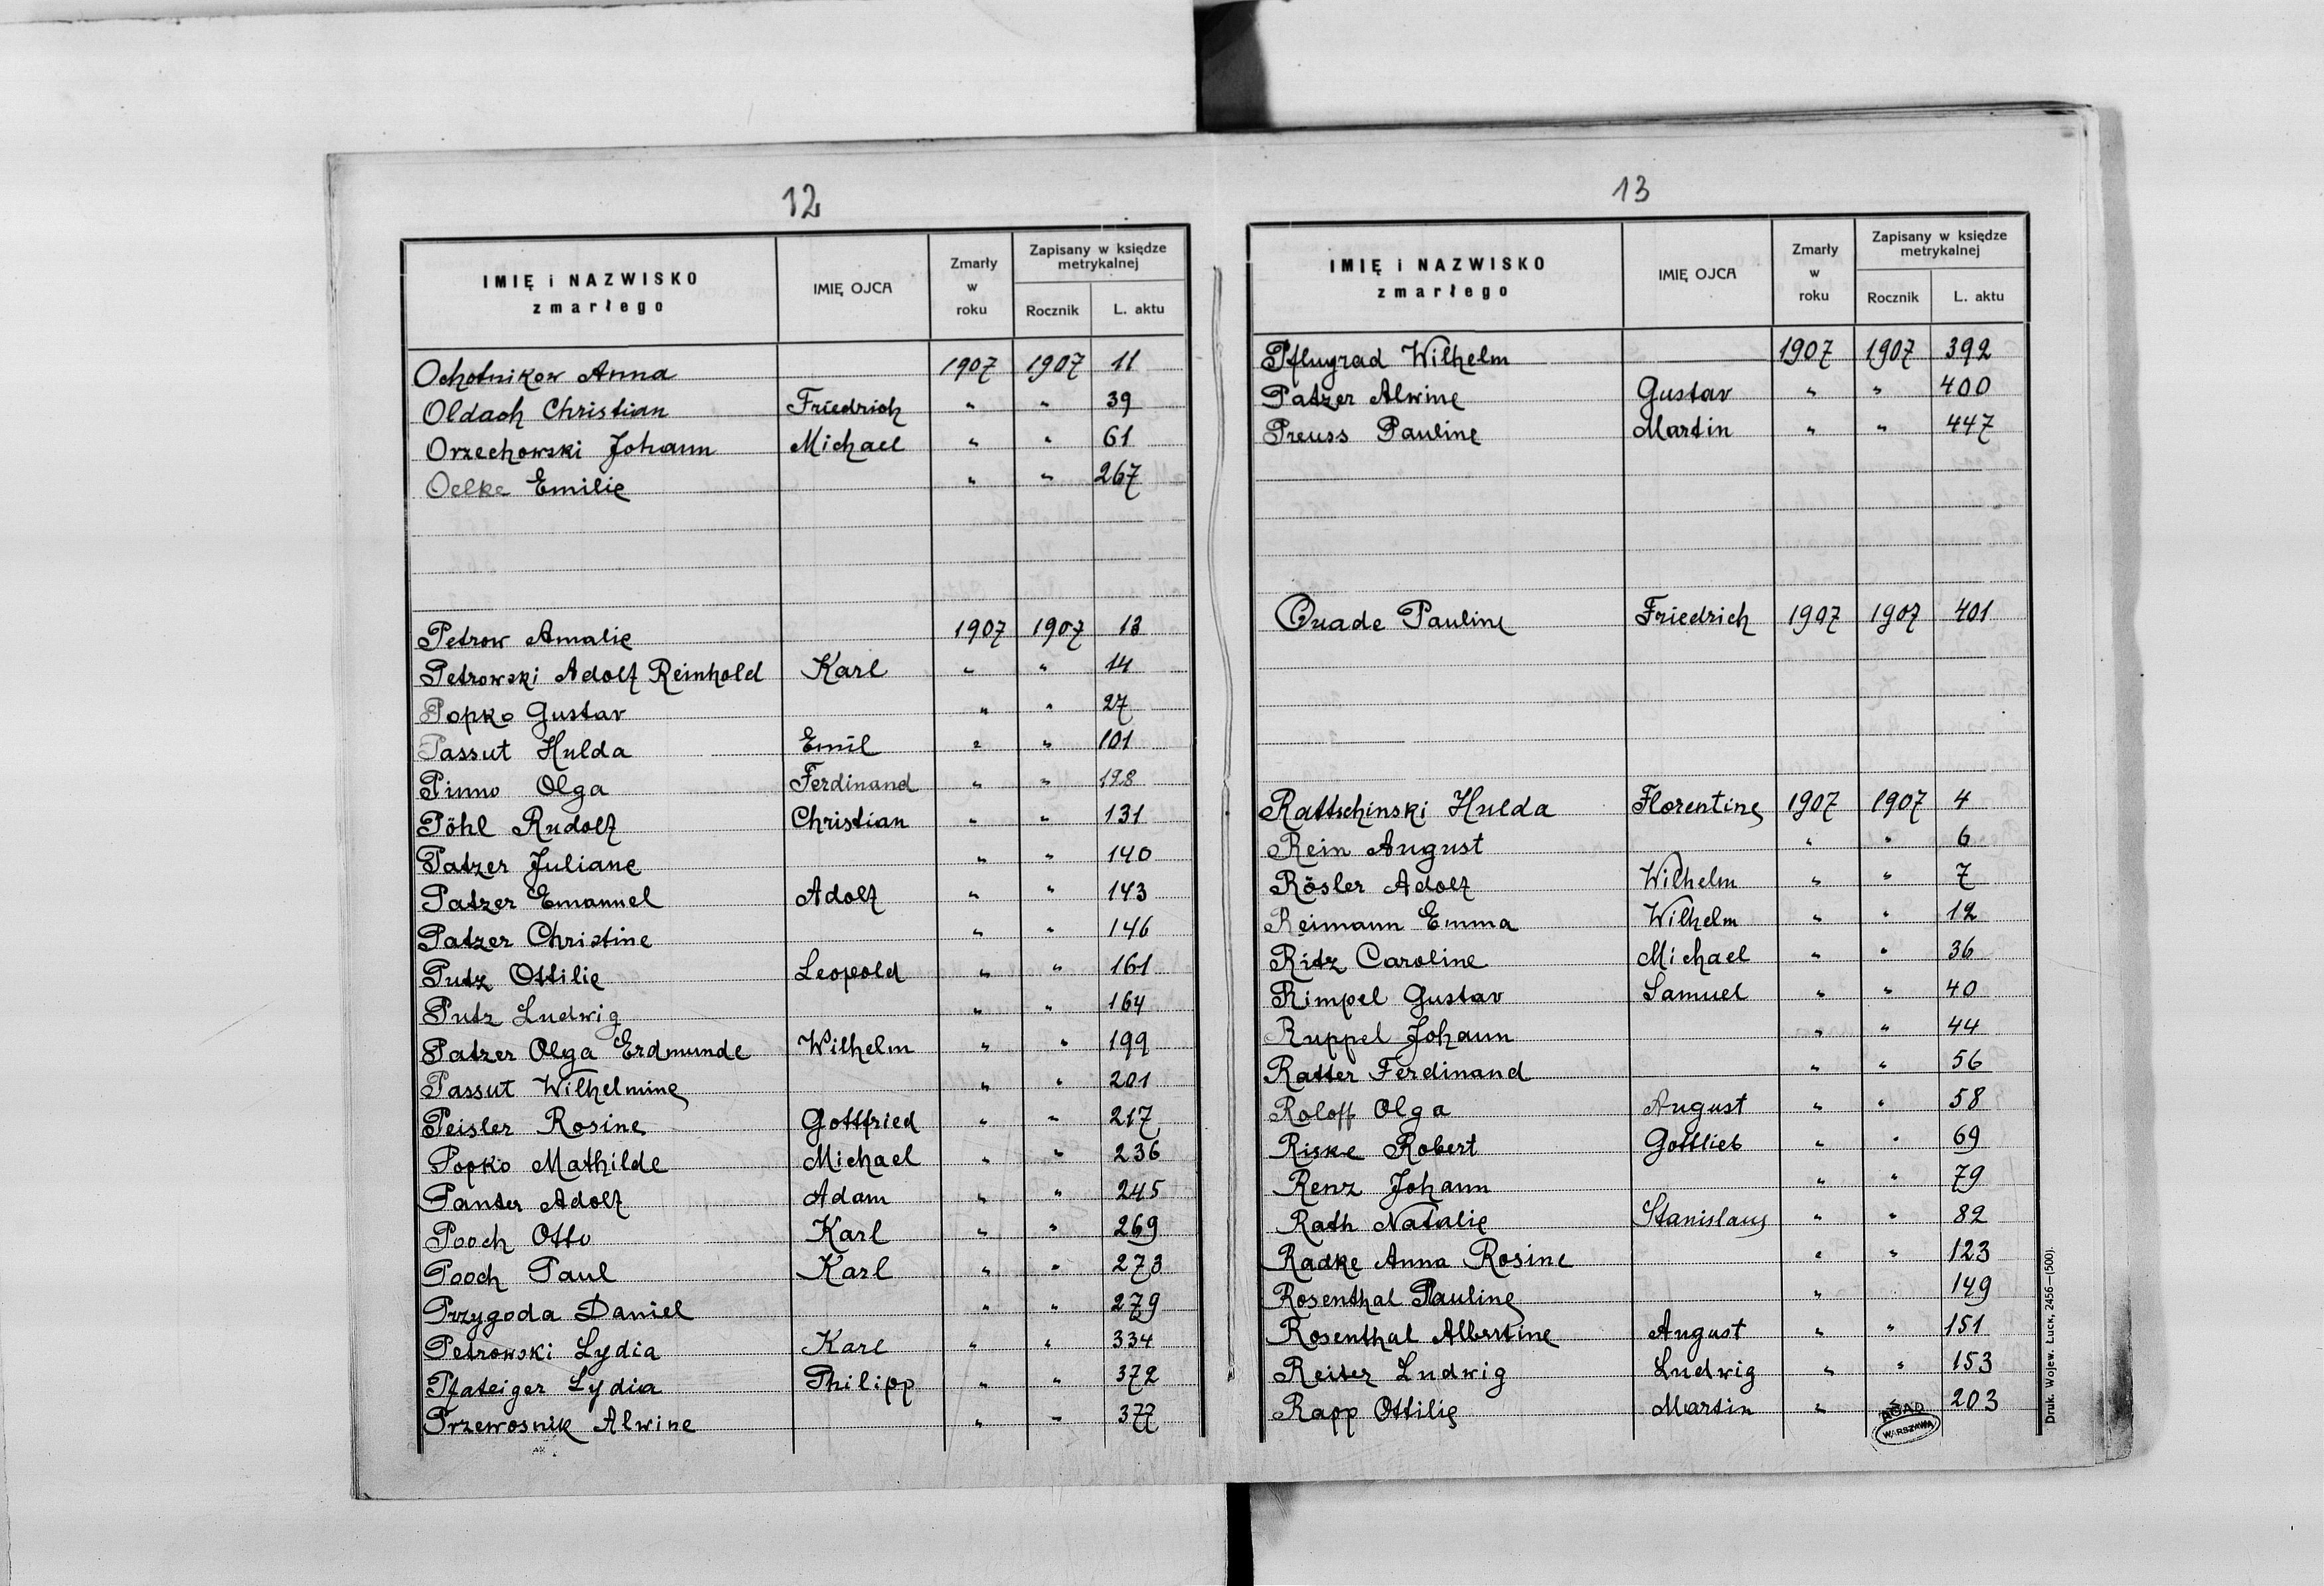 12
IMIĘ i NAZWISKO zmarłego | IMIĘ OJCA | Zmarły w roku | Zapisany w księdze metrykalnej
Rocznik | L. aktu
Ochotnikow Anna 1907 1907 11
Oldach Christian Friedrich " " 39
Orzechowski Johann Michael " " 61
Oelke Emilie " " 267
Petrow Amalie 1907 1907 13
Petrowski Adolf Reinhold Karl " " 14
Popko Gustav " " 27
Passut Hulda Emil " " 101
Pinno Olga Ferdinand " " 128
Pöhl Rudolf Christian " " 131
Patzer Juliane " " 140
Patzer Emanuel Adolf " " 143
Patzer Christine " " 146
Putz Ottilie Leopold " " 161
Putz Ludwig " " 164
Patzer Olga Erdmunde Wilhelm " " 199
Passut Wilhelmine " " 201
Peisler Rosine Gottfried " " 217
Popko Mathilde Michael " " 236
Panter Adolf Adam " " 245
Pooch Otto Karl " " 269
Pooch Paul Karl " " 273
Przygoda Daniel " " 279
Petrowski Lydia Karl " " 334
Pfateiger Lydia Philipp " " 372
Przewosnik Alwine " " 377
13
IMIĘ i NAZWISKO zmarłego | IMIĘ OJCA | Zmarły w roku | Zapisany w księdze metrykalnej
Rocznik | L. aktu
Pflugrad Wilhelm — 1907 1907 392
Patzer Alwine Gustav " " 400
Preuss Pauline Martin " " 447
Quade Pauline Friedrich 1907 1907 401
Rattschinski Hulda Florentine 1907 1907 4
Rein August " " 6
Rösler Adolf Wilhelm " " 7
Reimann Emma Wilhelm " " 12
Ritz Caroline Michael " " 36
Rimpel Gustav Samuel " " 40
Ruppel Johann " " 44
Ratter Ferdinand " " 56
Roloff Olga August " " 58
Riske Robert Gottlieb " " 69
Renz Johann " " 79
Rath Natalie Stanislaus " " 82
Radke Anna Rosine " " 123
Rosenthal Pauline " " 149
Rosenthal Albertine August " " 151
Reiter Ludwig Ludwig " " 153
Rapp Ottilie Martin " " 203
AGAD
WARSZAWA
Druk. Wojew. Łuck, 2456—(500).